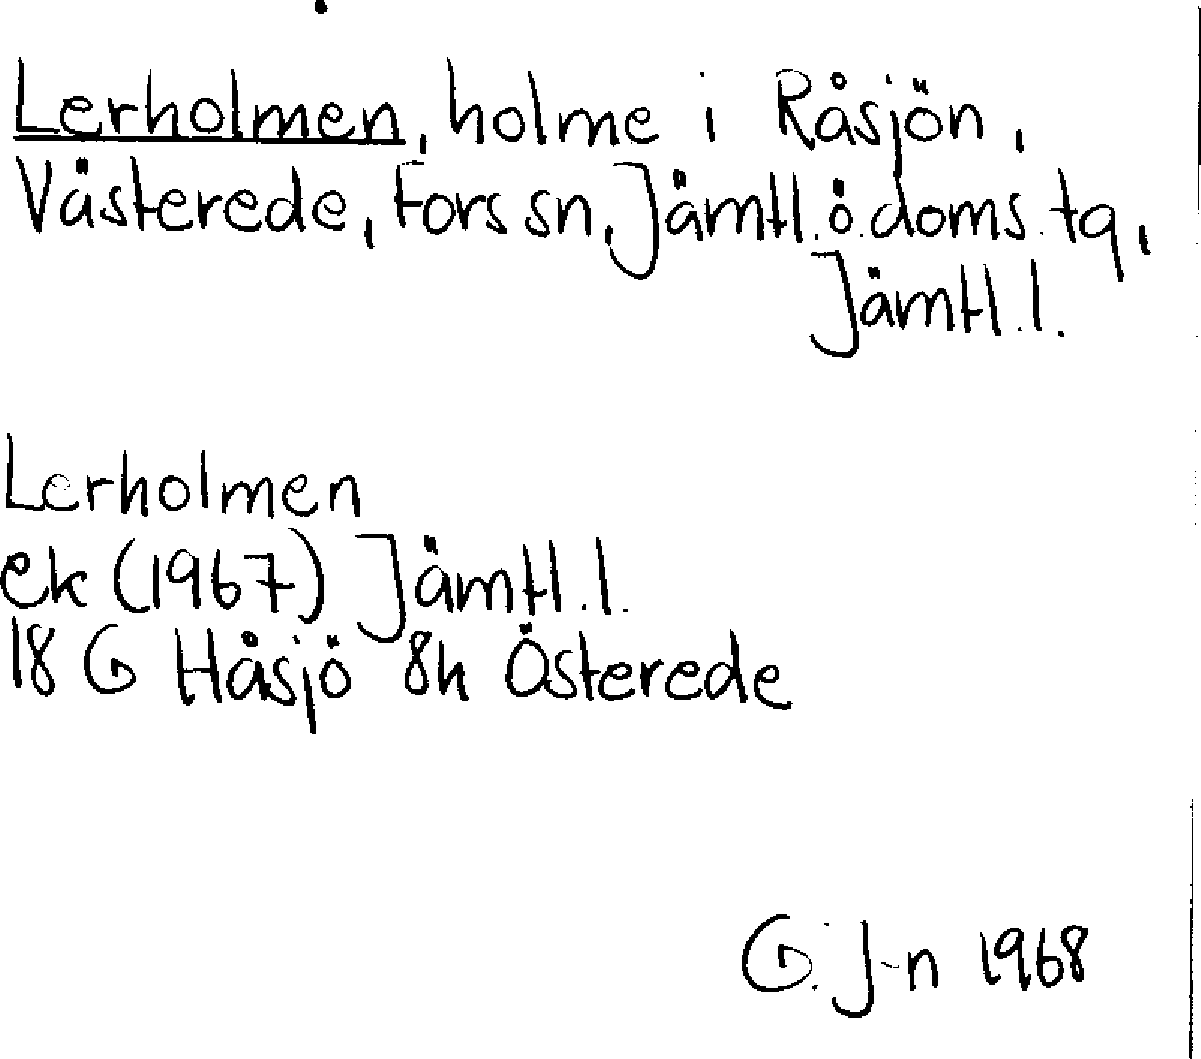 Lerholmen, holme i Råsjön,
Västerede, Fors sn, Jämtl. ö. doms. tg,
Jämtl. l.
Lerholmen
ek (1967) Jämtl. l.
18 G Håsjö 8h Österede
G. J-n 1968